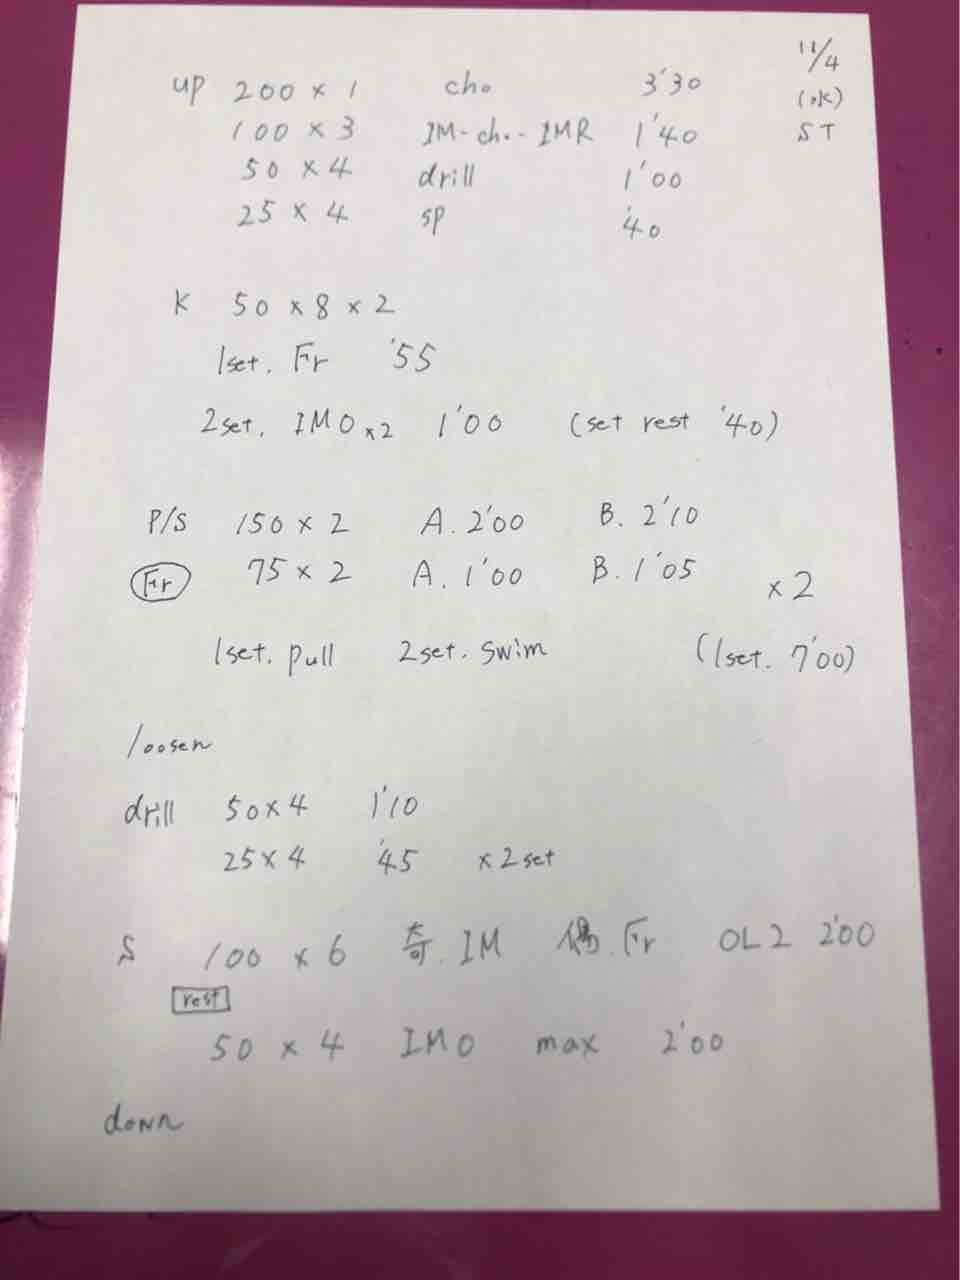 11/4
(OK)
ST
up 200 × 1 cho 3'30
100 × 3 IM-cho-IMR 1'40
50 × 4 drill 1'00
25 × 4 sp '40
K 50 × 8 × 2
1set. Fr '55
2set. IMO×2 1'00 (set rest '40)
P/S 150 × 2 A. 2'00 B. 2'10
Fr 75 × 2 A. 1'00 B. 1'05 ×2
1set. pull 2set. swim (1set. 7'00)
loosen
drill 50×4 1'10
25×4 '45 ×2set
S 100 × 6 奇. IM 偶. Fr OL2 2'00
rest
50 × 4 IMO max 2'00
down